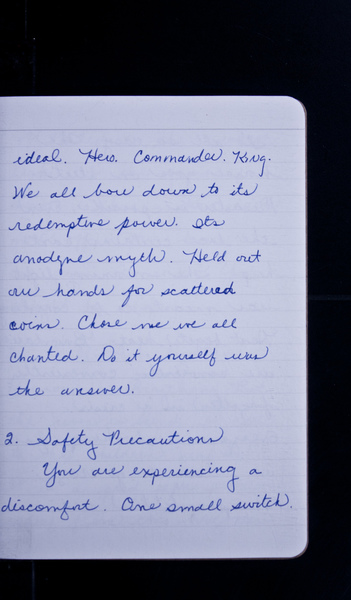 ideal. Hero. Commander. King.
We all bow down to its
redemptive power. Its
anodyne myth. Held out
our hands for scattered
coins. Chose me we all
chanted. Do it yourself was
the answer.
2. Safety Precautions
You are experiencing a
discomfort. One small switch.